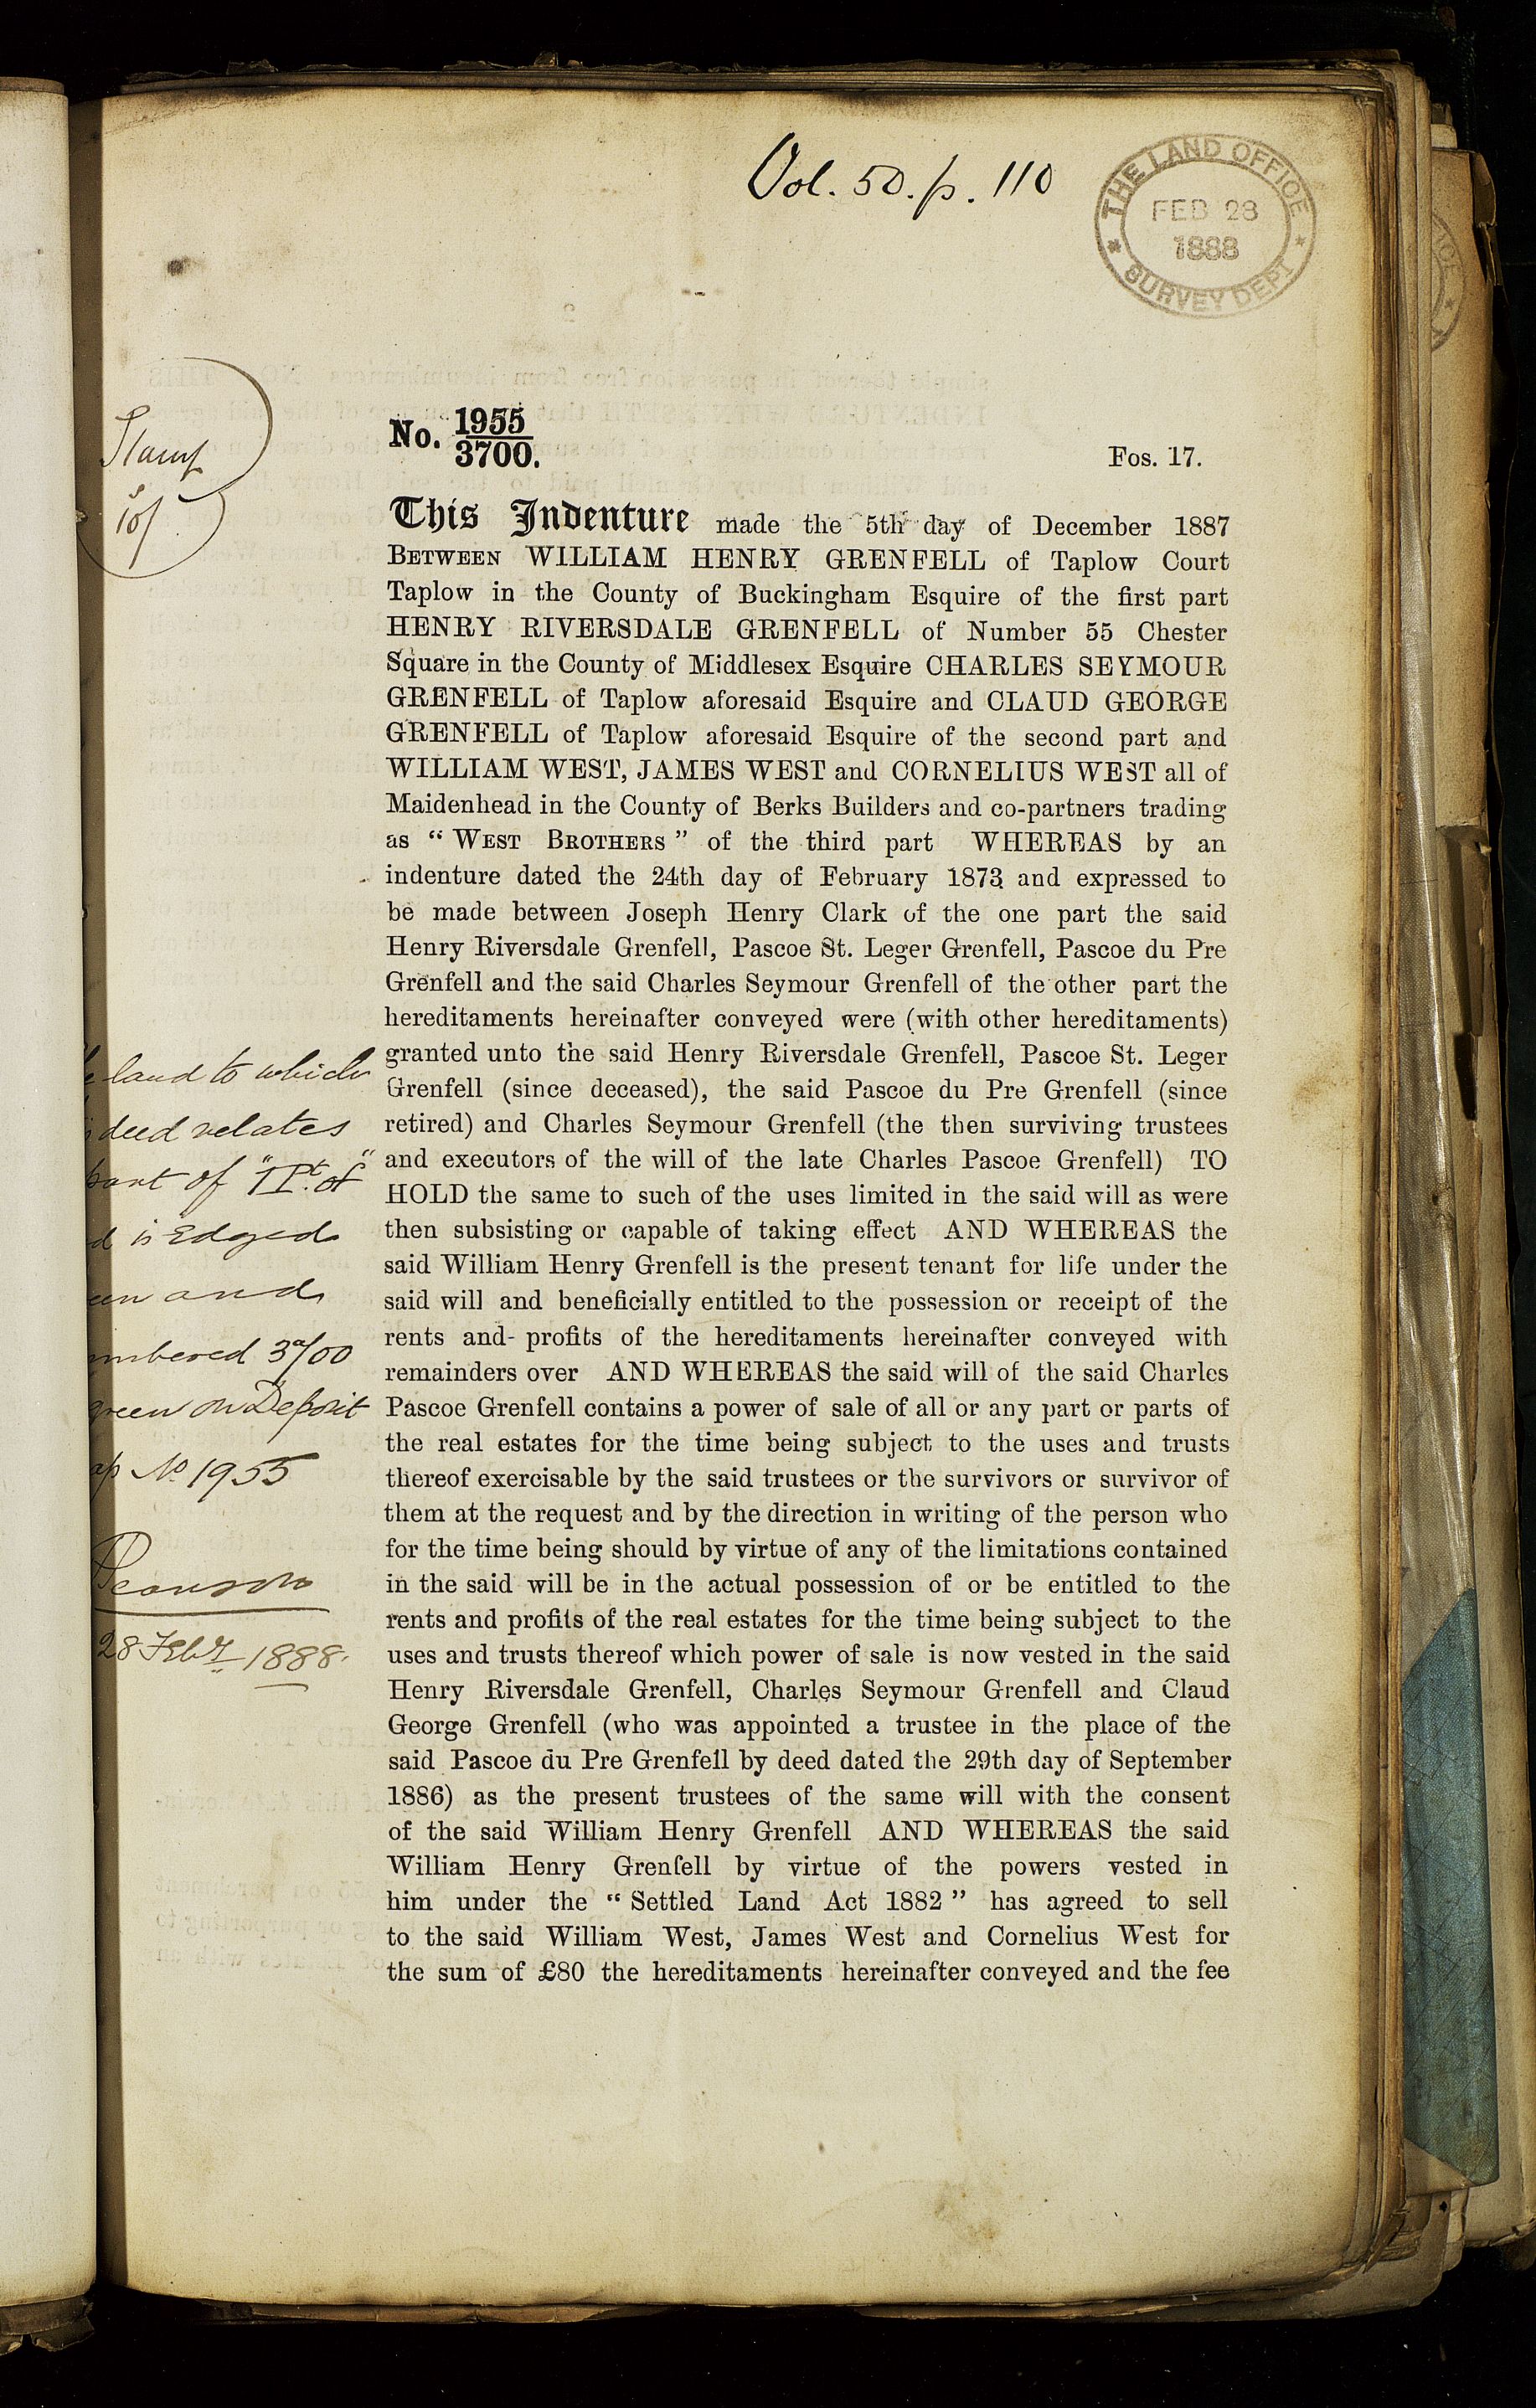 Vol. 50. p. 110
THE LAND OFFICE
FEB 28
1888
SURVEY DEPT
Stamp
10/
No. 1955
3700.
Fos. 17.
This Indenture made the 5th day of December 1887
BETWEEN WILLIAM HENRY GRENFELL of Taplow Court
Taplow in the County of Buckingham Esquire of the first part
HENRY RIVERSDALE GRENFELL of Number 55 Chester
Square in the County of Middlesex Esquire CHARLES SEYMOUR
GRENFELL of Taplow aforesaid Esquire and CLAUD GEORGE
GRENFELL of Taplow aforesaid Esquire of the second part and
WILLIAM WEST, JAMES WEST and CORNELIUS WEST all of
Maidenhead in the County of Berks Builders and co-partners trading
as “ WEST BROTHERS ” of the third part WHEREAS by an
indenture dated the 24th day of February 1873 and expressed to
be made between Joseph Henry Clark of the one part the said
Henry Riversdale Grenfell, Pascoe St. Leger Grenfell, Pascoe du Pre
Grenfell and the said Charles Seymour Grenfell of the other part the
hereditaments hereinafter conveyed were (with other hereditaments)
granted unto the said Henry Riversdale Grenfell, Pascoe St. Leger
Grenfell (since deceased), the said Pascoe du Pre Grenfell (since
retired) and Charles Seymour Grenfell (the then surviving trustees
and executors of the will of the late Charles Pascoe Grenfell) TO
HOLD the same to such of the uses limited in the said will as were
then subsisting or capable of taking effect AND WHEREAS the
said William Henry Grenfell is the present tenant for life under the
said will and beneficially entitled to the possession or receipt of the
rents and profits of the hereditaments hereinafter conveyed with
remainders over AND WHEREAS the said will of the said Charles
Pascoe Grenfell contains a power of sale of all or any part or parts of
the real estates for the time being subject to the uses and trusts
thereof exercisable by the said trustees or the survivors or survivor of
them at the request and by the direction in writing of the person who
for the time being should by virtue of any of the limitations contained
in the said will be in the actual possession of or be entitled to the
rents and profits of the real estates for the time being subject to the
uses and trusts thereof which power of sale is now vested in the said
Henry Riversdale Grenfell, Charles Seymour Grenfell and Claud
George Grenfell (who was appointed a trustee in the place of the
said Pascoe du Pre Grenfell by deed dated the 29th day of September
1886) as the present trustees of the same will with the consent
of the said William Henry Grenfell AND WHEREAS the said
William Henry Grenfell by virtue of the powers vested in
him under the “ Settled Land Act 1882 ” has agreed to sell
to the said William West, James West and Cornelius West for
the sum of £80 the hereditaments hereinafter conveyed and the fee
land to which
deed relates
part of "1 Pt. of"
is Edged
and
3a/00
green on Deposit
No 1955
Pearson
28 Feby 1888.